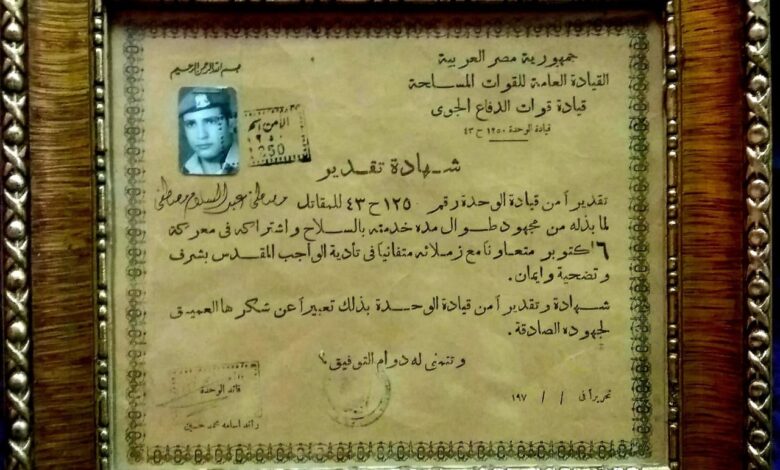 بسم الله الرحمن الرحيم
جمهورية مصر العربية
القيادة العامة للقوات المسلحة
قيادة قوات الدفاع الجوى
قيادة الوحدة ١٢٥٠ ح ٤٣
الأمن
1250
شهادة تقدير
تقديراً من قيادة الوحدة رقم ١٢٥٠ ح ٤٣ للمقاتل مصطفى عبد السلام مصطفى
لما بذله من مجهود طوال مدة خدمته بالسلاح واشتراكه فى معركة
٦ اكتوبر متعاونا مع زملائه متفانيا فى تأدية الواجب المقدس بشرف
وتضحية وايمان.
شهادة وتقديراً من قيادة الوحدة بذلك تعبيراً عن شكرها العميق
لجهوده الصادقة.
وتتمنى له دوام التوفيق،
تحريراً فى / / ١٩٧
قائد الوحدة
رائد اسامه محمد حسين